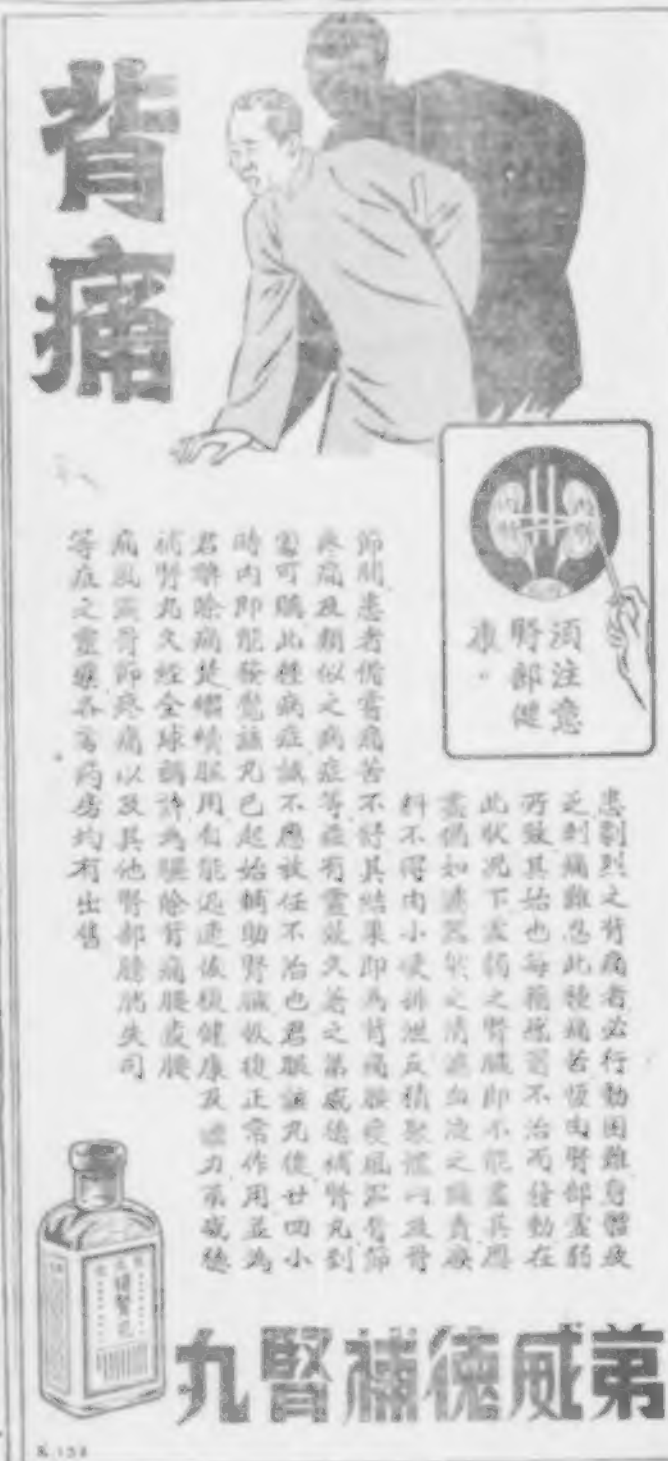 背痛
須注意
腎部健
康。
內腎
內腎
患劇烈之背痛者必行動困難身體疲
乏刺痛難忍此種痛苦恆由腎部虛弱
所致其始也每不治而發動在
此狀况下衰弱之腎臟即不能盡其應
盡如濾器然之清濾血液之職責廢
料不得由小便排泄反積聚體內及骨
節間患者備嘗痛苦不舒其結果即為背痛腰痠風濕骨節
疼痛及類似之病症等症有靈效久著之弟威德補腎丸到
處可購此種病症誠不應放任不治也君服該丸後廿四小
時內即能發覺該丸已起始輔助腎臟恢復正常作用並為
君解除痛楚繼續服用自能迅速恢復健康及體力弟威德
補腎丸久經全球稱許為驅除背痛腰痠腰
痛風濕骨節疼痛以及其他腎部膀胱失司
等症之靈藥各药房均有出售
補腎丸
弟威德補腎丸